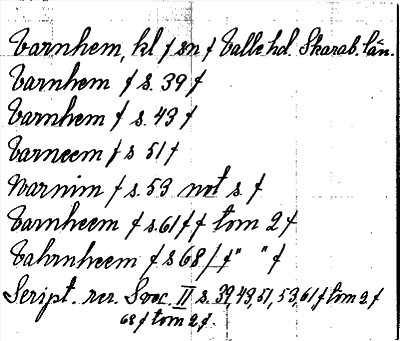 Varnhem, kl f sn f Valle hd. Skarab. län.
Varnhem f s. 39 f
Varnhem f s. 43 f
Varneem f s 51 f
Warnim f s. 53 not s. f
Varnheem f s. 61 f f tom 2 f
Vahrnheem f s 68 / f " " f
Script. rer. Svec. II s. 39, 43, 51, 53, 61 f tom 2 f
68 f tom 2 f.